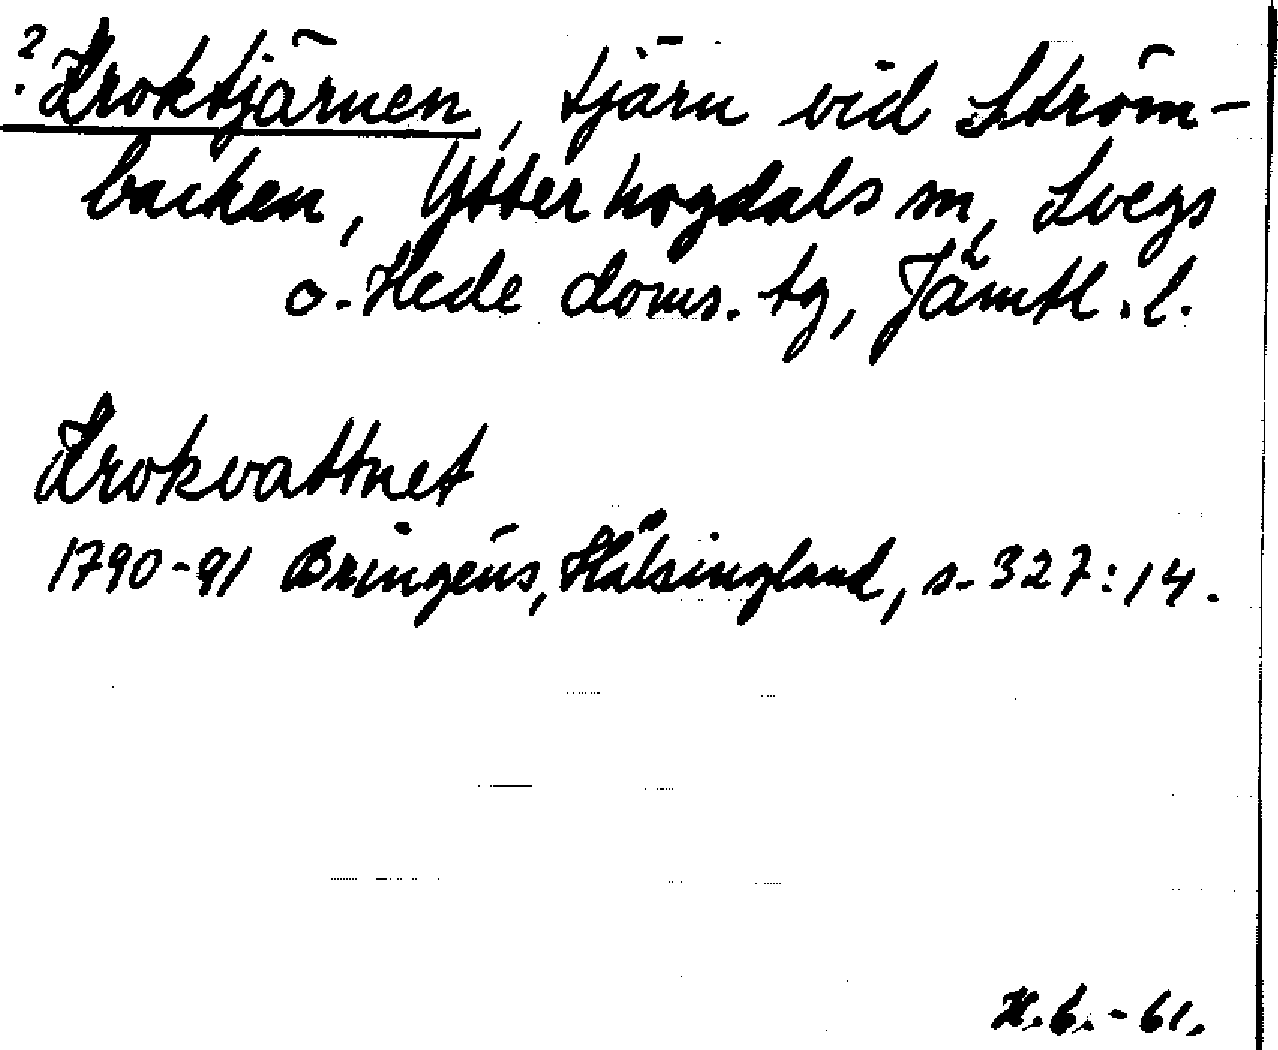 ? Kroktjärnen, tjärn vid Ström-
backen, Ytterhogdals sn, Svegs
o. Hede doms. tg, Jämtl. l.
Krokvattnet
1790-91 Bringéus, Hälsingland, s. 327:14.
H.b.-61.